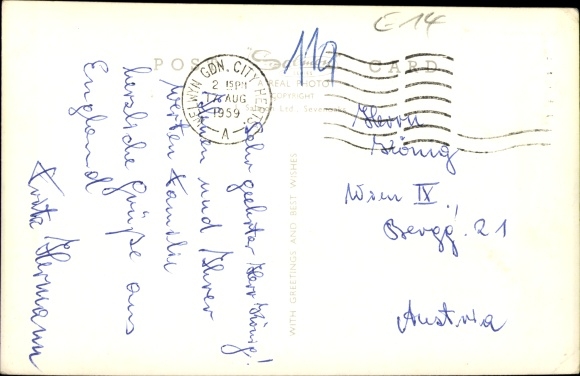 E14
119
POST CARD
REAL PHOTO
COPYRIGHT
Ltd., Sevenoaks
WELWYN GDN. CITY HERTS
2 15PM
17 AUG
1959
A
WITH GREETINGS AND BEST WISHES
Sehr geehrter Herr König!
Ihnen und Ihrer
werten Familie
herzliche Grüße aus
England
Fritz Hermann
Herrn
König
Wien IX.,
Bergg. 21
Austria